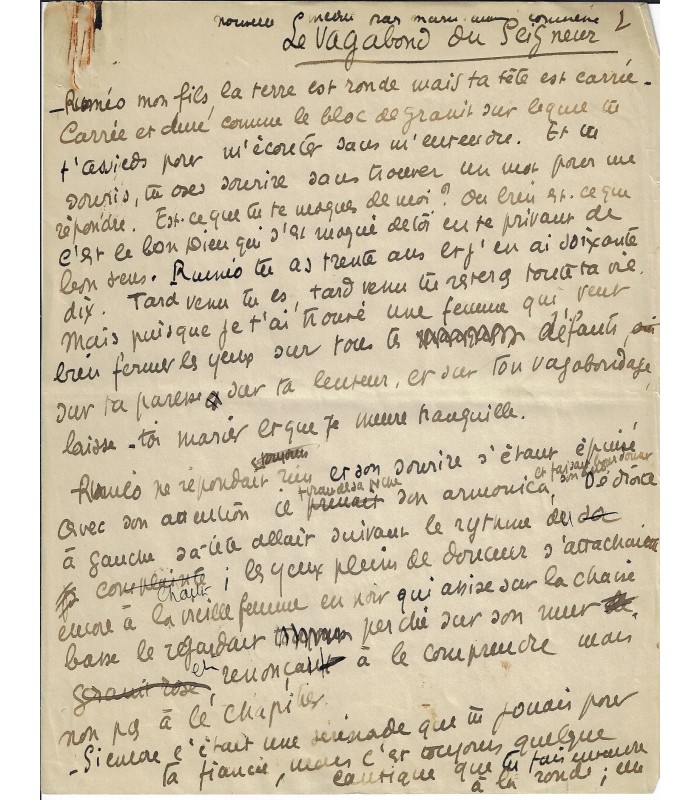 nouvelle
Le Vagabond du Seigneur
- Ruméo mon fils, la terre est ronde mais ta tête est carrée.
Carrée et dure comme le bloc de granit sur lequel tu
t'assieds pour m'écouter sans m'entendre. Et tu
souris, tu oses sourire sans trouver un mot pour me
répondre. Est-ce que tu te moques de moi ? Ou bien est-ce que
c'est le bon Dieu qui s'est moqué de toi en te privant de
bon sens. Ruméo tu as trente ans et j'en ai soixante
dix. Tard venu tu es, tard venu tu resteras toute ta vie.
Mais puisque je t'ai trouvé une femme qui veut
bien fermer les yeux sur tous tes défauts,
sur ta paresse sur ta lenteur, et sur ton vagabondage,
laisse-toi marier et que je meure tranquille.
toujours
- Ruméo ne répondait rien et son sourire s'étant épuisé
tira de sa poche
avec son attention il prenait son armonica, De droite
à gauche sa tête allait suivant le rythme de sa
complainte ; les yeux pleins de douceur s'attachaient
chant
encore à la vieille femme en noir qui assise sur la chaise
basse le regardait perché sur son mur de
granit rose et renonçait à le comprendre mais
non pas à le chapitrer.
- Si encore c'était une sérénade que tu jouais pour
ta fiancée, mais c'est toujours quelque
cantique que tu fais entendre
à la ronde ; un